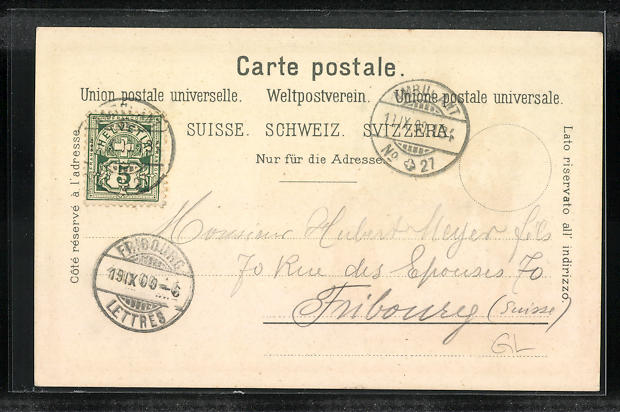 Carte postale.
Union postale universelle. Weltpostverein. Unione postale universale.
SUISSE. SCHWEIZ. SVIZZERA.
Nur für die Adresse
Côté réservé à l'adresse.
Lato riservato all' indirizzo.
HELVETIA
5
AMBULANT
No 27
FRIBOURG
LETTRES
Monsieur Hubert Meyer fils
70 Rue des Epouses 70
Fribourg (Suisse)
GL